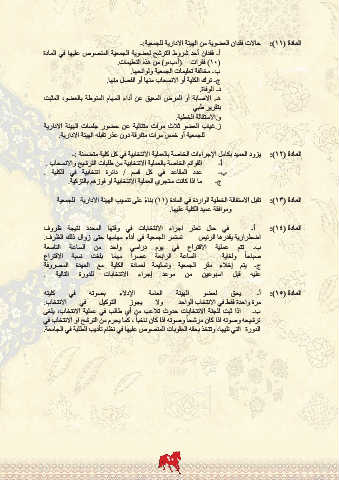 المادة (١١): حالات فقدان العضوية من الهيئة الادارية للجمعية:ـ
أ‌. فقدان أحد شروط الترشيح لعضوية الجمعية المنصوص عليها في المادة
(١٠) فقرات (أ،ب،و) من هذه التعليمات.
ب‌. مخالفة تعليمات الجمعية ولوائحها.
ج. ترك الكلية أو الانسحاب منها أو الفصل منها.
د. الوفاة.
هـ. الاصابة أو المرض المعيق عن أداء المهام المنوطة بالعضو، المثبت
بتقرير طبي
و. الاستقالة الخطية.
ز. غياب العضو ثلاث مرات متتالية عن حضور جلسات الهيئة الادارية
للجمعية أو خمس مرات متفرقة دون عذر تقبله الهيئة الادارية.
المادة (١٢): يزود العميد بكامل الإجراءات الخاصة بالعملية الانتخابية في كل كلية متضمنة :ـ
أ. القوائم الخاصة بالعملية الانتخابية من طلبات الترشيح والانسحاب .
ب. عدد المقاعد في كل قسم / دائرة انتخابية في الكلية .
ج. ما اذا كانت ستجري العملية الانتخابية أو فوزهم بالتزكية.
المادة (١٣): تقبل الاستقالة الخطية الواردة في المادة (١١) بناءً على تنسيب الهيئة الادارية للجمعية
وموافقة عميد الكلية عليها.
المادة (١٤): أ. في حال تعذر إجراء الانتخابات في وقتها المحدد نتيجة ظروف
اضطرارية يقدرها الرئيس تستمر الجمعية في أداء مهامها حتى زوال تلك الظرف.
ب. تتم عملية الاقتراع في يوم دراسي واحد من الساعة التاسعة
صباحاً ولغاية الساعة الرابعة عصراً مهما بلغت نسبة الاقتراع
ج. يتم إخلاء مقر الجمعية وتسليمه لعمادة الكلية مع العهدة المصروفة
عليه قبل اسبوعين من موعد إجراء الانتخابات للدورة التالية
المادة (١٥): أ. يحق لعضو الهيئة العامة الإدلاء بصوته في كليته
مرة واحدة فقط في الانتخاب الواحد ولا يجوز التوكيل في الانتخاب.
ب. اذا ثبت للجنة الانتخابات حدوث تلاعب من أي طالب في عملية الانتخاب، يلغى
ترشيحه وصوته اذا كان مرشحاً وصوته اذا كان ناخباً ، كما يحرم من الترشيح أو الانتخاب في
الدورة التي تليها، وتتخذ بحقه العقوبات المنصوص عليها في نظام تأديب الطلبة في الجامعة.